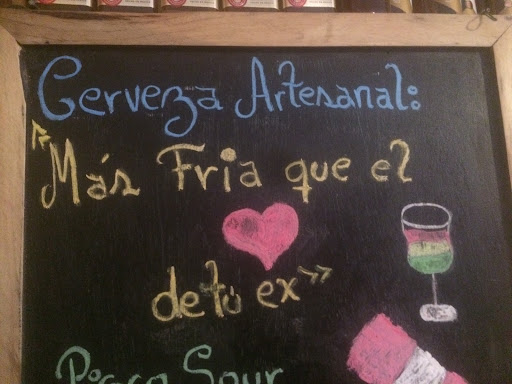 Cerveza Artesanal:
"Más Fria que el
de tú ex"
Pisco Sour